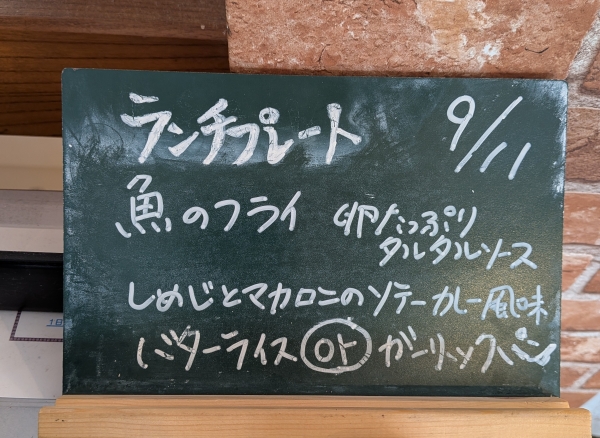 ランチプレート 9/11
魚のフライ 卵たっぷり
タルタルソース
しめじとマカロニのソテーカレー風味
バターライス or ガーリックパン